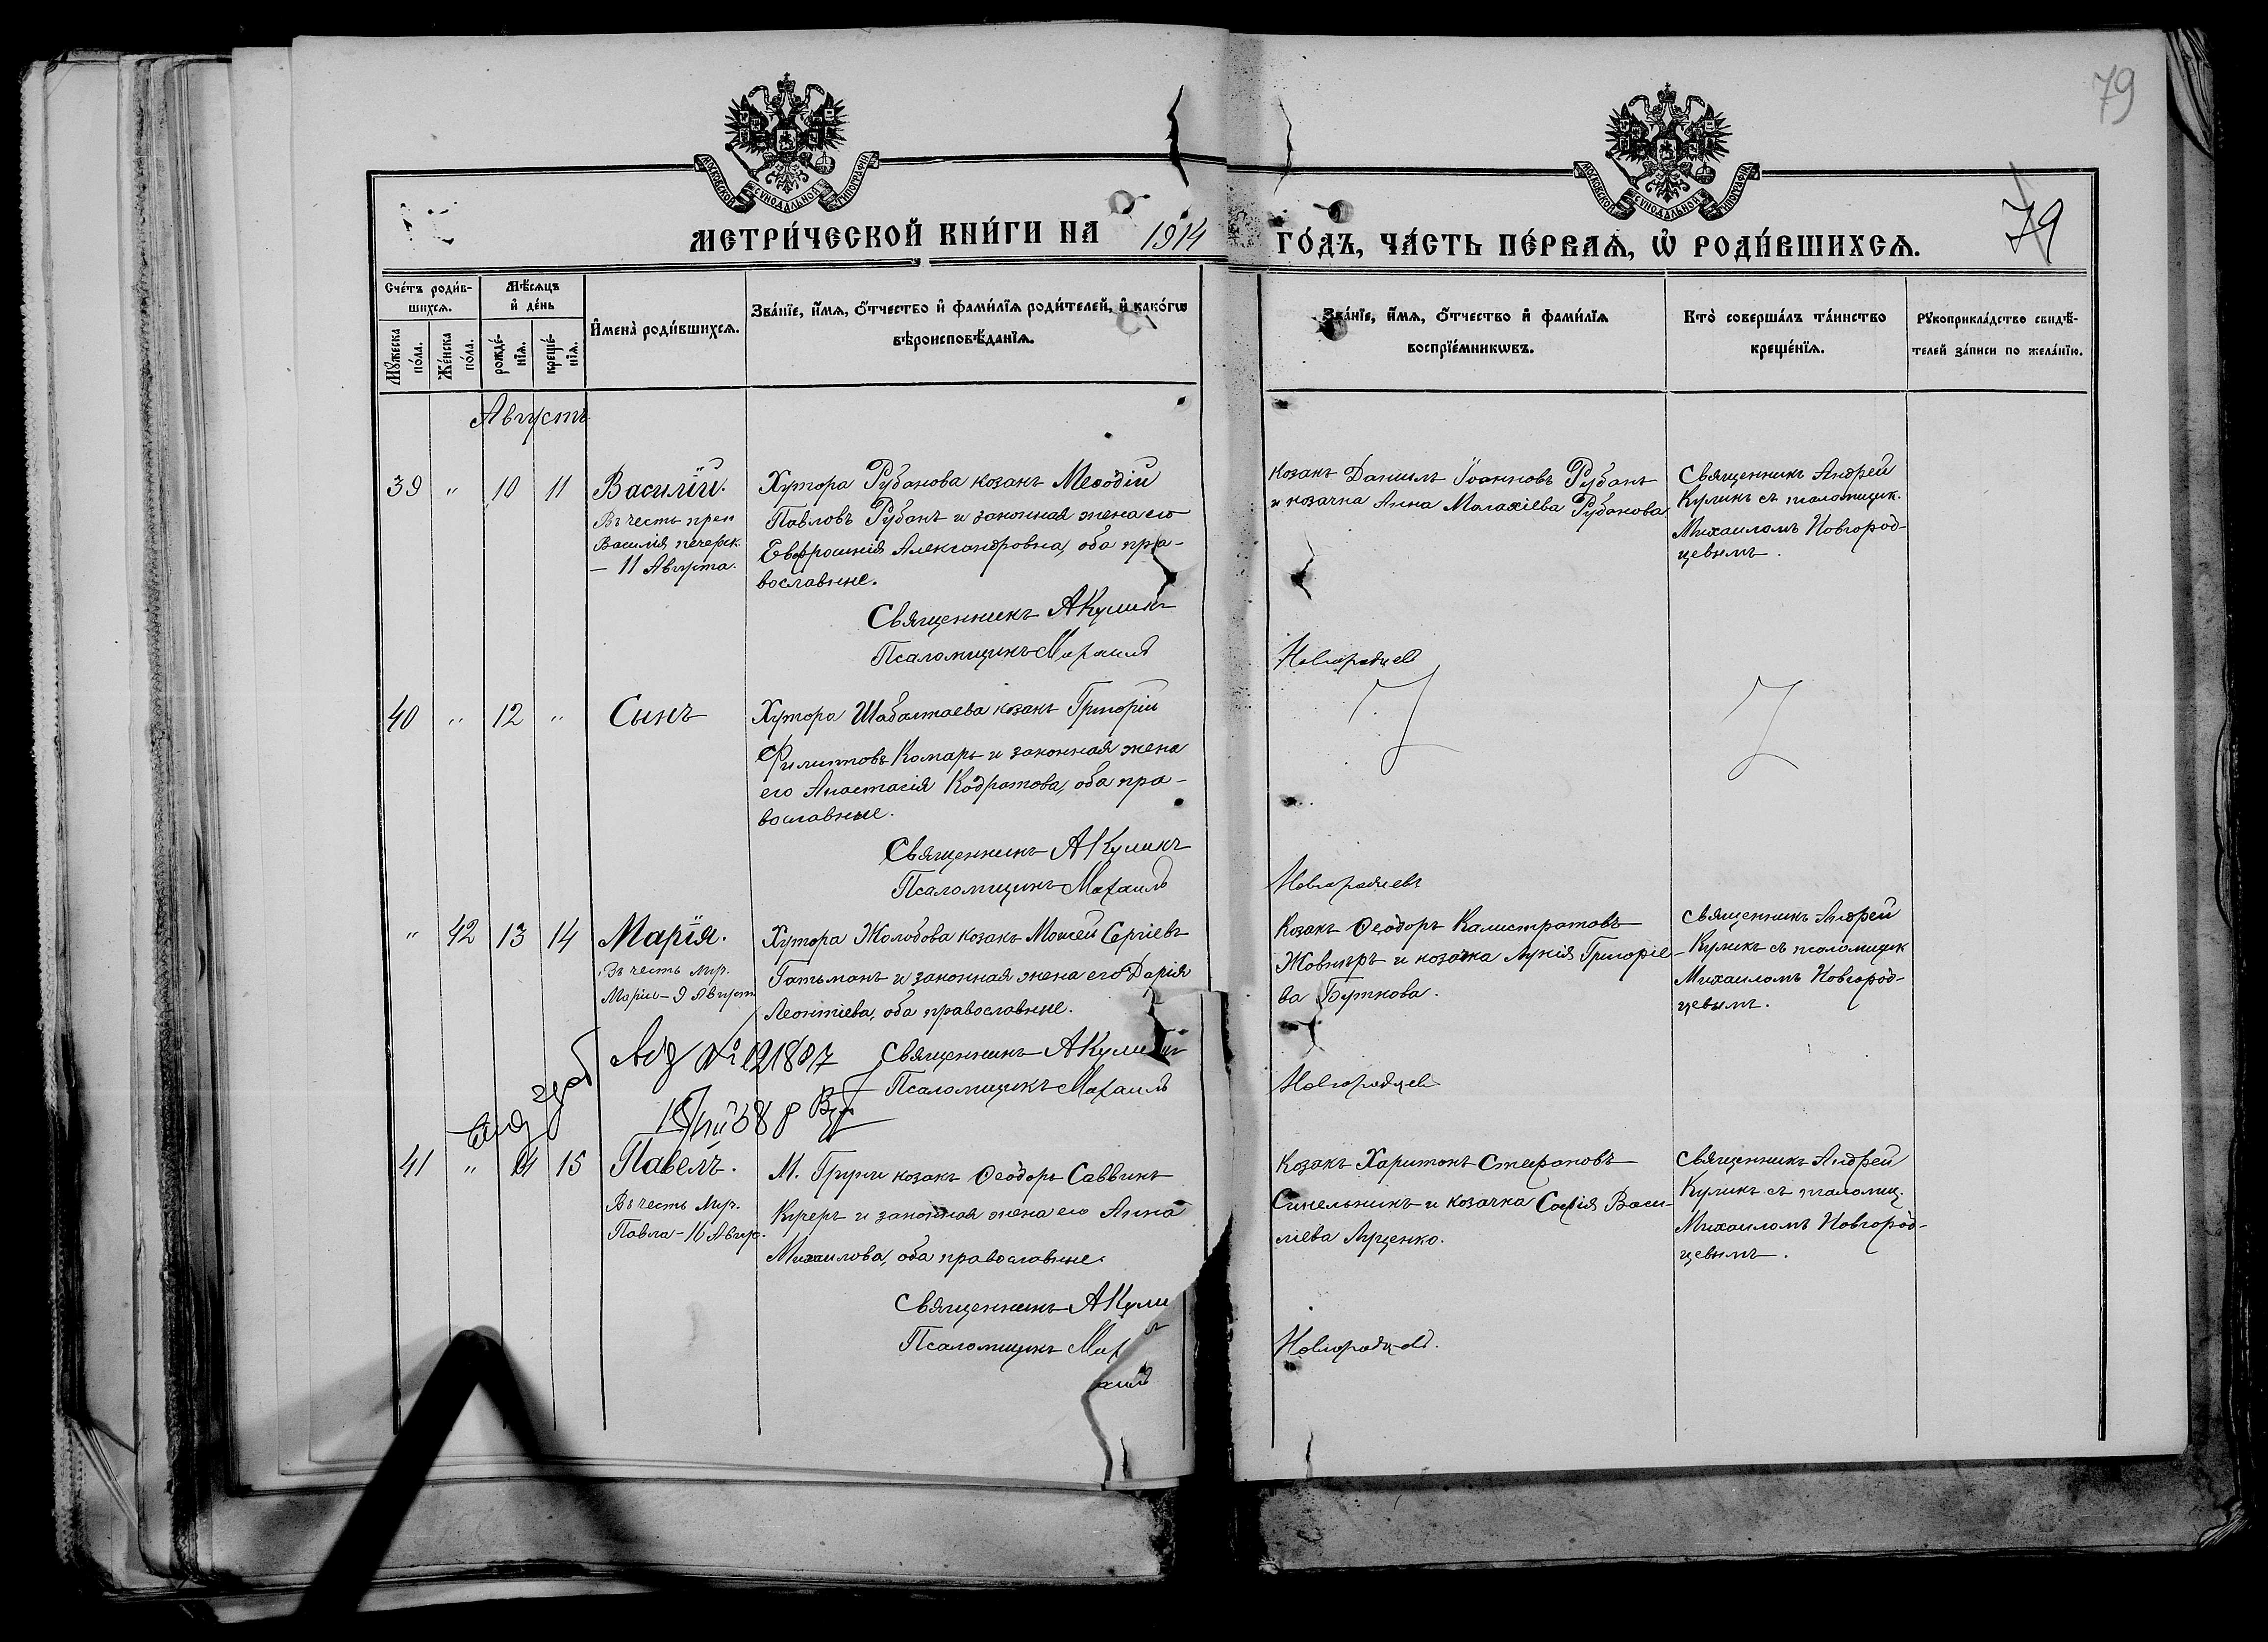 79
МОСКОВСКОЙ СѴНОДАЛЬНОЙ ТИПОГРАФІИ
МОСКОВСКОЙ СѴНОДАЛЬНОЙ ТИПОГРАФІИ
МЕТРИ́ЧЕСКОЙ КНИ́ГИ НА 1914 ГО́ДЪ, ЧА́СТЬ ПЕ́РВАѦ, Ѽ РОДИ́ВШИХСѦ.
79
Сче́тъ роди́в-
шихсѧ.
Мꙋжеска по́ла.
Же́нска по́ла.
Мѣ́сѧцъ и҆ де́нь
рожде́-нїѧ.
креще́-нїѧ.
И҆мена̀ роди́вшихсѧ.
Зва́нїе, и҆́мѧ, ѻ҆́тчество и҆ фами́лїѧ роди́телей, и҆ како́гѡ
вѣроисповѣ́данїѧ.
Зва́нїе, и҆́мѧ, ѻ҆́тчество и҆ фами́лїѧ
воспрїе́мникѡвъ.
Кто̀ соверша́лъ та́инство
креще́нїѧ.
Рꙋкоприкла́дство свидѣ́-
телей за́писи по жела́нїю.
Августъ
39 " 10 11 Василій.
Въ честь преп
Василія печерск.
– 11 Августа.
Хутора Рубанова козакъ Меѳодій
Павловъ Рубанъ и законная жена его
Евфросинія Александровна, оба пра-
вославные.
Священникъ А Куликъ
Псаломщикъ Михаилъ
Козакъ Даніилъ Іоанновъ Рубанъ
и козачка Анна Малахіева Рубанова
Священникъ Андрей
Куликъ съ псаломщик.
Михаиломъ Новгород-
цевымъ.
Новгородцевъ
40 " 12 " Сынъ
Хутора Шабалтаева козакъ Григорій
Филипповъ Комаръ и законная жена
его Анастасія Кодратова, оба пра-
вославные.
Священникъ А Куликъ
Псаломщикъ Михаилъ
Новгородцевъ
" 42 13 14 Марія.
Въ честь мур.
Маріи – 9 Август
Хутора Жолобова козакъ Моисей Сергіевъ
Гатьманъ и законная жена его Дарія
Леонтіева, оба православные.
Священникъ А Куликъ
Псаломщикъ Михаилъ
Козакъ Ѳеодоръ Калистратовъ
Жовниръ и козачка Лукія Григоріе-
ва Буткова.
Священникъ Андрей
Куликъ съ псаломщик
Михаиломъ Новгород-
цевымъ.
Новгородцевъ
№ 121887
41 " 14 15 Павелъ.
Въ честь Мур.
Павла – 10 Авгус.
М. Груни козакъ Ѳеодоръ Саввинъ
Куреръ и законная жена его Анна
Михаилова, оба православные.
Священникъ А Кули
Псаломщикъ Мих
аилъ
Козакъ Харитонъ Стефановъ
Синельникъ и козачка Софія Васи-
ліева Луценко.
Священникъ Андрей
Куликъ съ псаломщ.
Михаиломъ Новгород-
цевымъ.
Новгородцевъ.